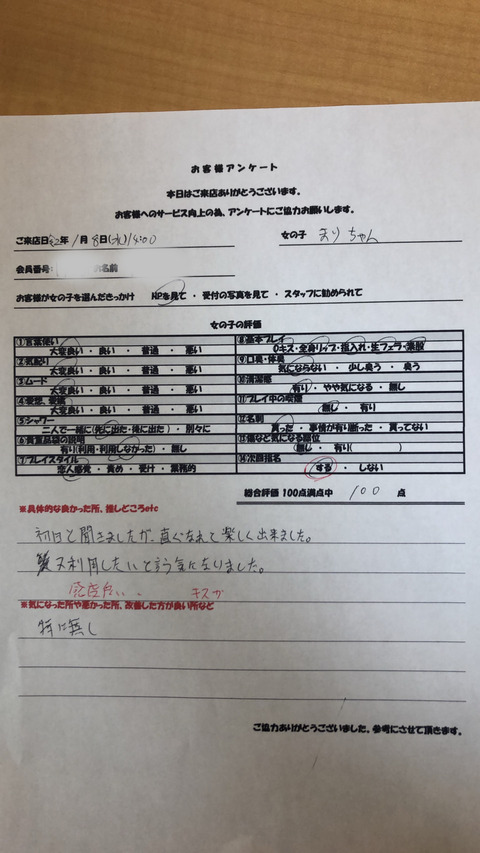 お客様アンケート
本日はご来店ありがとうございます。
お客様へのサービス向上の為、アンケートにご協力お願いします。
ご来店日 年 1月 8日(水)14:00 女の子 まりちゃん
会員番号: 名前
お客様が女の子を選んだきっかけ HPを見て ・ 受付の写真を見て ・ スタッフに勧められて
女の子の評価
①言葉使い
大変良い ・ 良い ・ 普通 ・ 悪い
②気配り
大変良い ・ 良い ・ 普通 ・ 悪い
③ムード
大変良い ・ 良い ・ 普通 ・ 悪い
④愛想、愛嬌
大変良い ・ 良い ・ 普通 ・ 悪い
⑤シャワー
二人で一緒に(先に出た・後に出た) ・ 別々に
⑥貴重品袋の説明
有り(利用・利用しなかった) ・ 無し
⑦プレイスタイル
恋人感覚 ・ 責め ・ 受け ・ 業務的
⑧基本プレイ
Dキス・全身リップ・指入れ・生フェラ・素股
⑨口臭・体臭
気にならない ・ 少し臭う ・ 臭う
⑩清潔感
有り ・ やや気になる ・ 無し
⑪プレイ中の喫煙
無し ・ 有り
⑫名刺
貰った ・ 事情が有り断った ・ 貰ってない
⑬傷など気になる部位
無し ・ 有り( )
⑭次回指名
する ・ しない
総合評価 100点満点中 100 点
※具体的な良かった所、推しどころetc
初日と聞きましたが、直ぐなれて楽しく出来ました。
又利用したいと言う気になりました。
感度良い、 キスが
※気になった所や悪かった所、改善した方が良い所など
特に無し
ご協力ありがとうございました。参考にさせて頂きます。